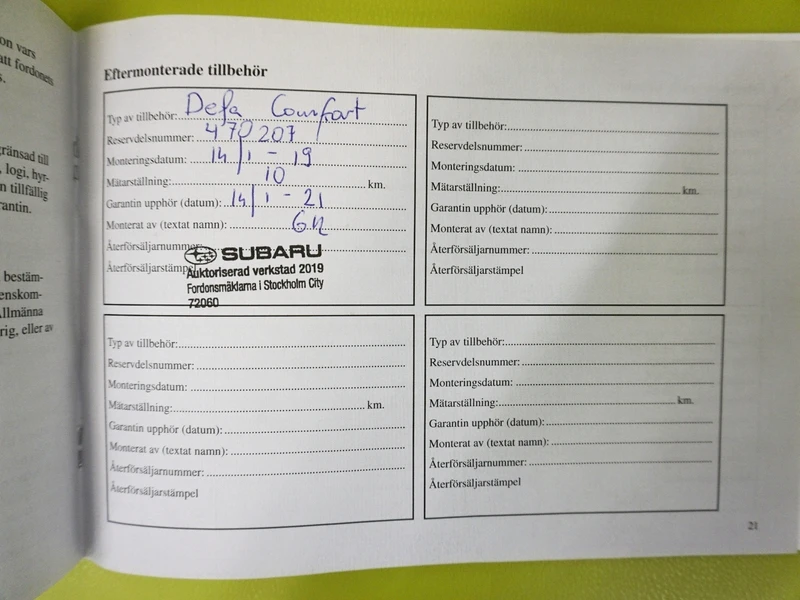 on vars
att fordonets
s.
gränsad till
, logi, hyr-
n tillfällig
rantin.
bestäm-
enskom-
Allmänna
rig, eller av
Eftermonterade tillbehör
Typ av tillbehör: Defa Comfort
Reservdelsnummer: 470207
Monteringsdatum: 14/1-19
Mätarställning: 10 km.
Garantin upphör (datum): 14/1-21
Monterat av (textat namn):
Återförsäljarnummer:
Återförsäljarstämpel
SUBARU
Auktoriserad verkstad 2019
Fordonsmäklarna i Stockholm City
72060
Typ av tillbehör:
Reservdelsnummer:
Monteringsdatum:
Mätarställning: km.
Garantin upphör (datum):
Monterat av (textat namn):
Återförsäljarnummer:
Återförsäljarstämpel
Typ av tillbehör:
Reservdelsnummer:
Monteringsdatum:
Mätarställning: km.
Garantin upphör (datum):
Monterat av (textat namn):
Återförsäljarnummer:
Återförsäljarstämpel
Typ av tillbehör:
Reservdelsnummer:
Monteringsdatum:
Mätarställning: km.
Garantin upphör (datum):
Monterat av (textat namn):
Återförsäljarnummer:
Återförsäljarstämpel
21